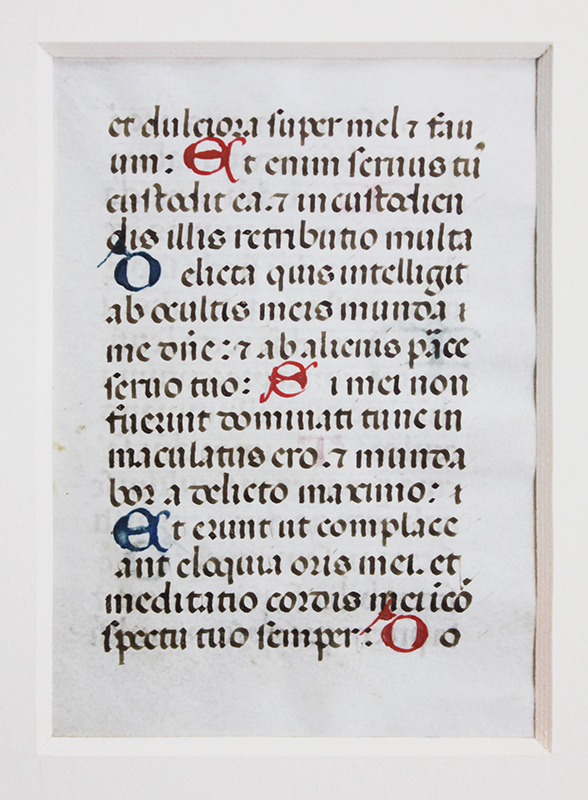 et dulciora super mel ⁊ fau
um: Et enim seruus tuꝰ
custodit ea. ⁊ in custodien
dis illis retributio multa
Delicta quis intelligit
ab ocultis meis munda
me dñe: ⁊ ab alienis pa̅ce
seruo tuo: Si mei non
fuerint dominati tunc in
maculatus ero. ⁊ munda
bor a delicto maximo:
Et erunt ut complace
ant eloquia oris mei. et
meditatio cordis mei i cõ
spectu tuo semper: Do